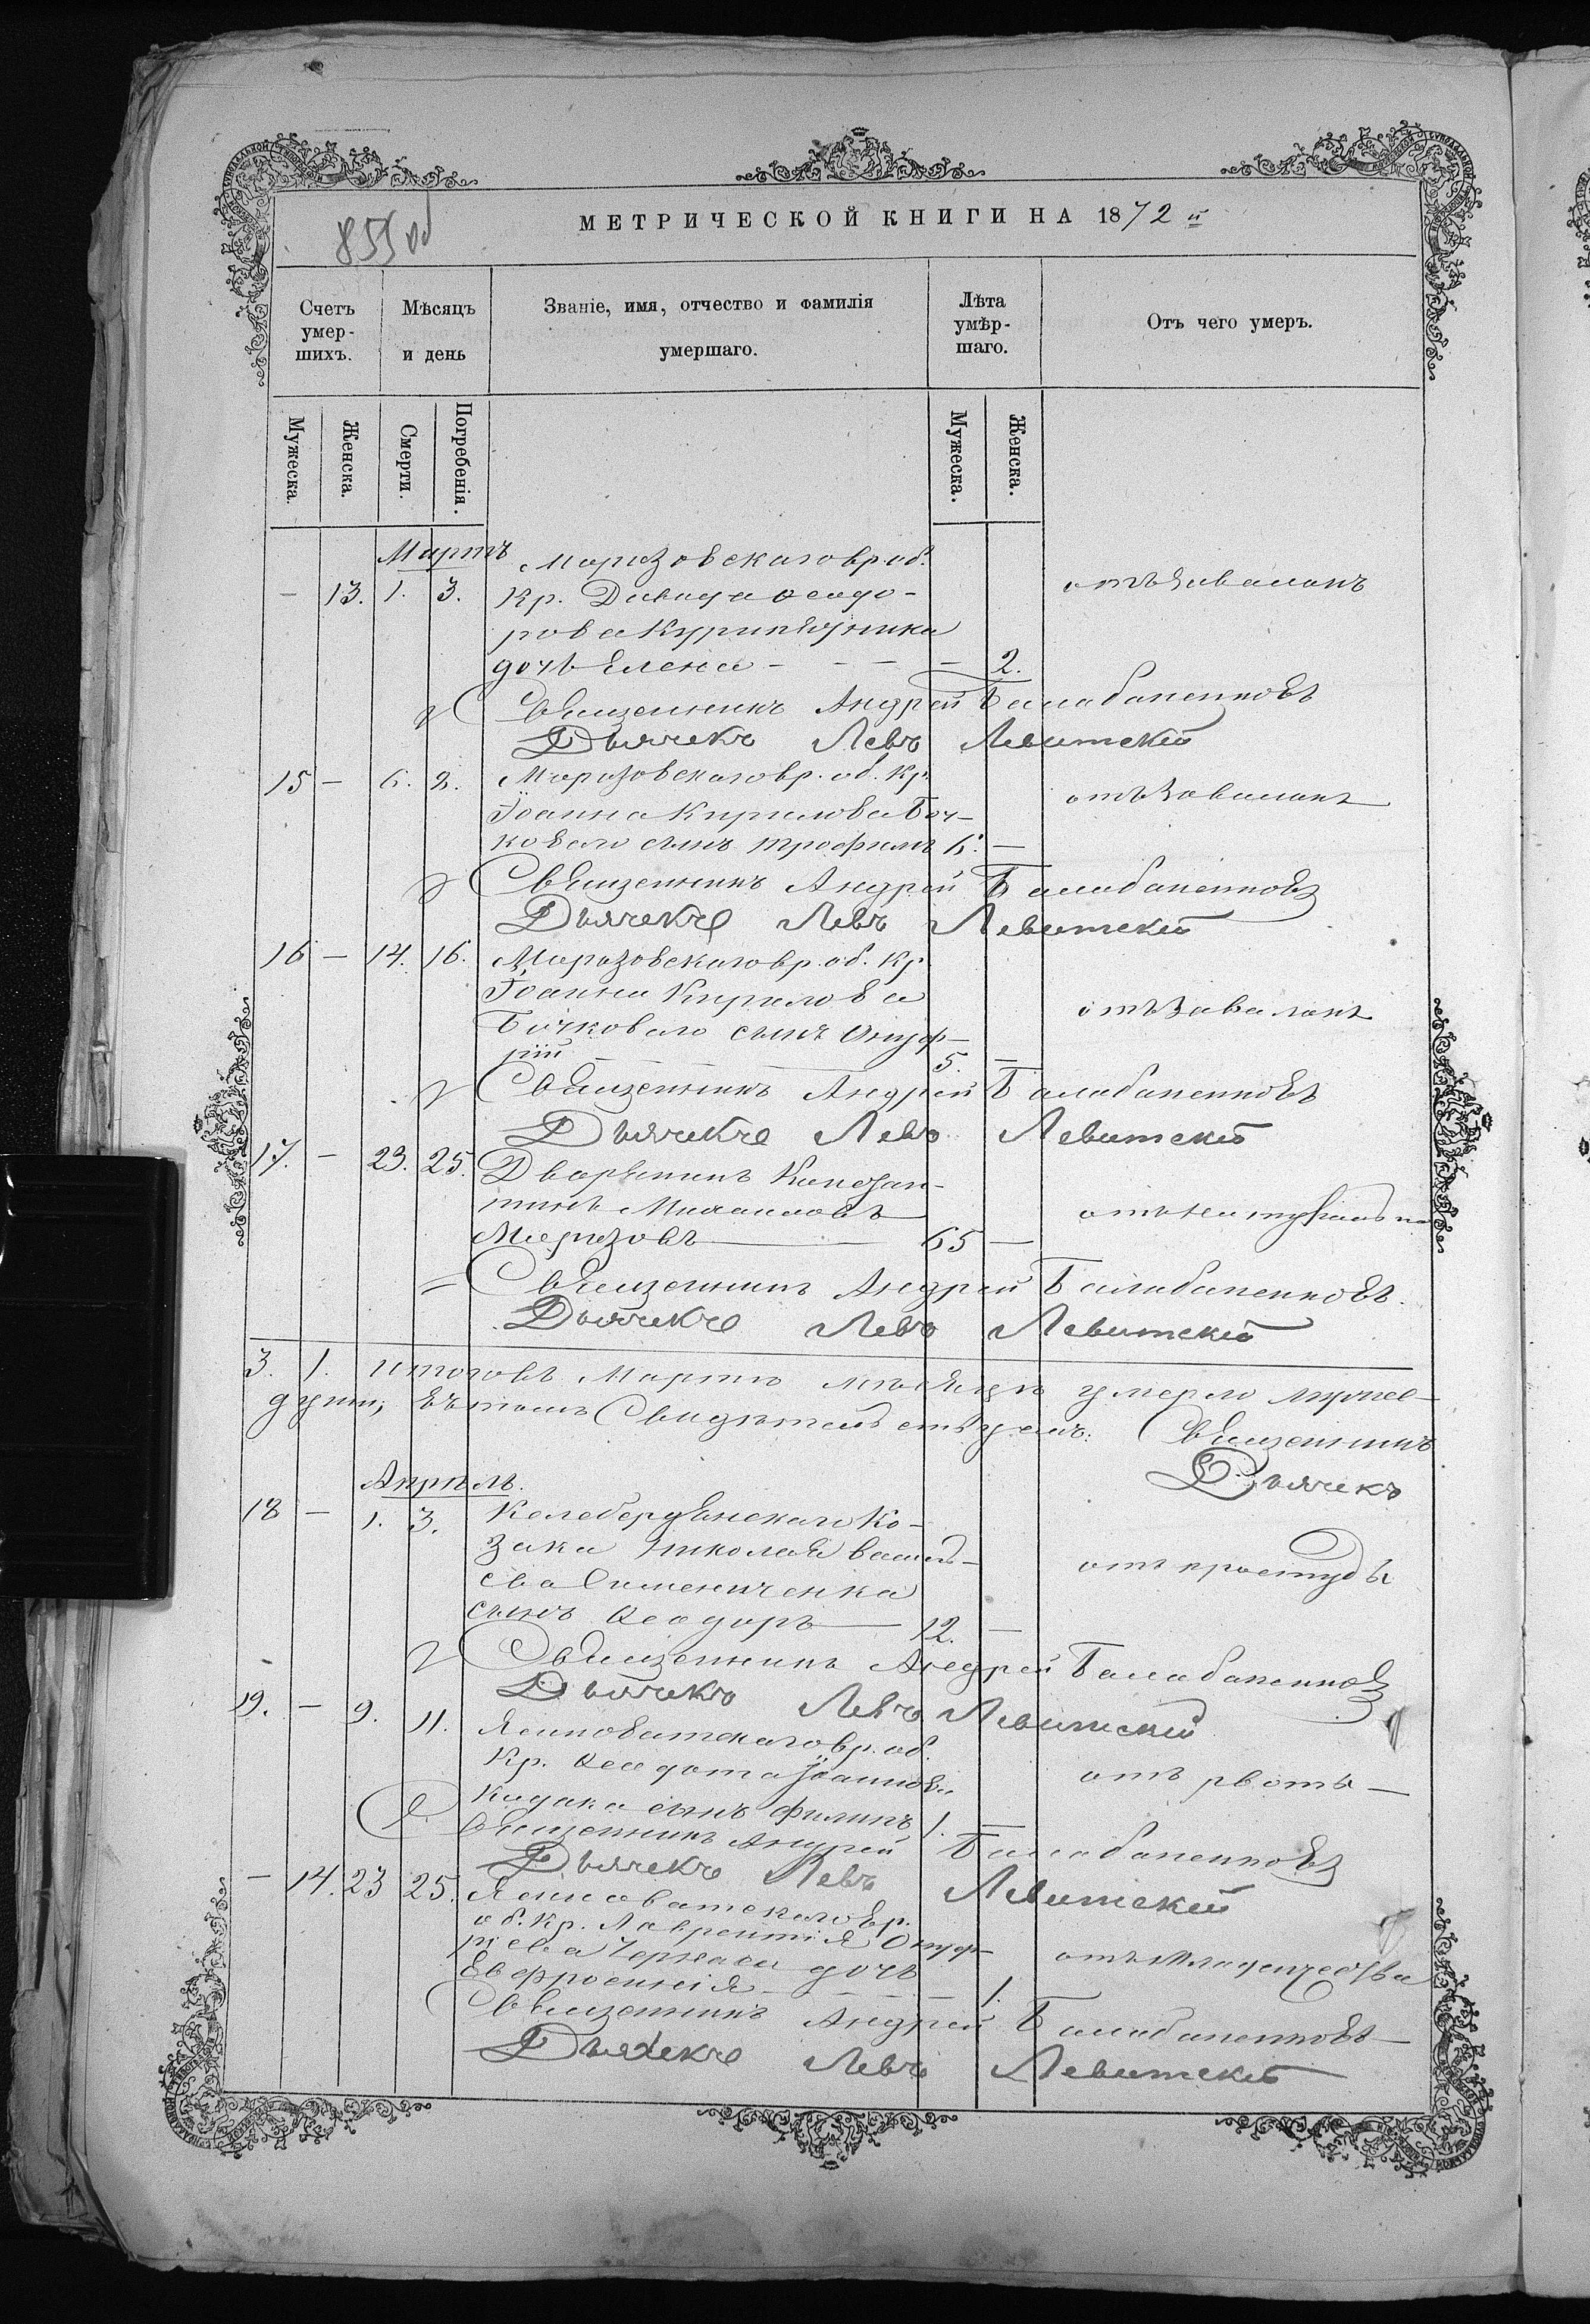 855 об
МЕТРИЧЕСКОЙ КНИГИ НА 1872 й
Счетъ умер-шихъ.
Мѣсяцъ и день
Званіе, имя, отчество и фамилія умершаго.
Лѣта умѣр-шаго.
Отъ чего умеръ.
Мужеска.
Женска.
Смерти.
Погребенія.
Мужеска.
Женска.
Мартъ
Морозовскаго вр. об.
– 13. 1. 3. Кр. Давида Ѳеодо-
рова
дочь Елена – – – – 2.
Священникъ Андрей Балабаненковъ
Дьячекъ Левъ Левитскій
15 – 6. 8. Морозовскаго вр. об. Кр.
Іоанна Кирилова Боч-
коваго сынъ Трофимъ 6. –
Священникъ Андрей Балабаненковъ
Дьячекъ Левъ Левитскій
16 – 14. 16. Морозовскаго вр. об. Кр.
Іоанна Кирилова
Бочковаго сынъ Онуф-
рій 5. –
Священникъ Андрей Балабаненковъ
Дьячекъ Левъ Левитскій
17. – 23. 25. Дворянинъ Констан-
тинъ Михаиловъ
Морозовъ 65 –
Священникъ Андрей Балабаненковъ.
Дьячекъ Левъ Левитскій
3. 1. Итого въ Мартѣ мѣсяцѣ умерло
души; въ томъ Свидѣтельствуемъ: Священникъ
Дьячекъ
Апрѣль.
18 – 1. 3. Келебердянскаго Ко-
зака Николая Василь-
ева
сынъ Ѳеодоръ 12. –
отъ простуды
Священникъ Андрей Балабаненковъ
Дьячекъ Левъ Левитскій
19. – 9. 11. Ясиноватскаго вр. об.
Кр. Ѳеодота Іоаннова
Кадака сынъ Филипъ 1. –
отъ рвоты –
Священникъ Андрей Балабаненковъ
Дьячекъ Левъ Левитскій
– 14. 23 25. Ясиноватскаго вр.
об. Кр. Лаврентія Онуф-
ріева дочь
Евфросинія – – – – 1.
отъ младенчества
Священникъ Андрей Балабаненковъ
Дьячекъ Левъ Левитскій